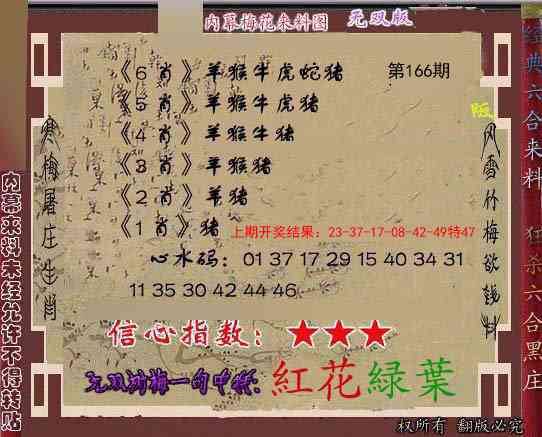 内幕梅花来料图 无双版
《6肖》羊猴牛虎蛇猪 第166期
《5肖》羊猴牛虎猪
《4肖》羊猴牛猪
《3肖》羊猴猪
《2肖》羊猪
《1肖》猪 上期开奖结果：23-37-17-08-42-49特47
心水码：01 37 17 29 15 40 34 31
11 35 30 42 44 46
信心指数：★★★
一句中特：紅花緑葉
权所有 翻版必究
寒梅屠庄生肖
内幕来料未经允许不得转贴
版
风雪竹梅欲钱料
经典六合来料
狂杀六合黑庄